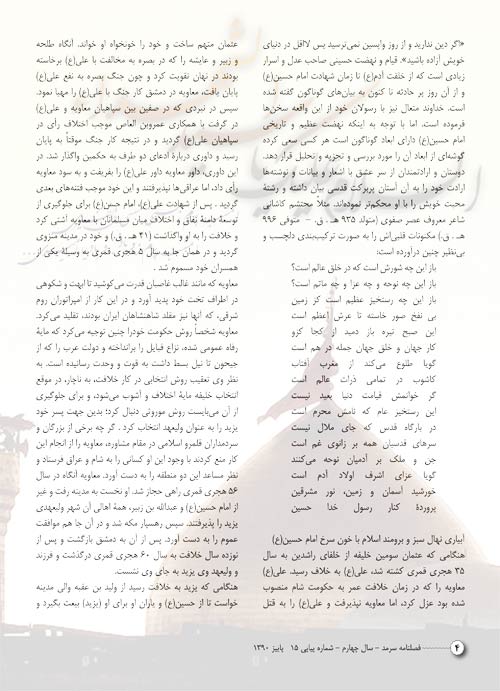 «اگر دین ندارید و از روز واپسین نمی‌ترسید پس لااقل در دنیای
خویش آزاده باشید». قیام و نهضت حسینی صاحب عدل و اسرار
زیادی است که از خلقت آدم(ع) تا زمان شهادت امام حسین(ع)
و از آن روز پر حادثه تا کنون به بیان‌های گوناگون گفته شده
است. خداوند متعال نیز با رسولان خود از این واقعه سخن‌ها
فرموده است. اما با توجه به اینکه نهضت عظیم و تاریخی
امام حسین(ع) دارای ابعاد گوناگون است هر کسی سعی کرده
گوشه‌ای از ابعاد آن را مورد بررسی و تجزیه و تحلیل قرار دهد.
دوستان و ارادتمندان از سر عشق با اشعار و بیانات و نوشته‌ها
ارادت خود را به آن آستان پربرکت قدسی بیان داشته و رشتهٔ
محبت خویش را با او محکم‌تر نموده‌اند. مثلاً محتشم کاشانی
شاعر معروف عصر صفوی (متولد ۹۳۵ هـ . ق. – متوفی ۹۹۶
هـ . ق.) مکنونات قلبی‌اش را به صورت ترکیب‌بندی دلچسب و
بی‌نظیر چنین درآورده است:
باز این چه شورش است که در خلق عالم است؟
باز این چه نوحه و چه عزا و چه ماتم است؟
باز این چه رستخیز عظیم است کز زمین
بی نفخ صور خاسته تا عرش اعظم است
این صبح تیره باز دمید از کجا کزو
کار جهان و خلق جهان جمله در هم است
گویا طلوع می‌کند از مغرب آفتاب
کاشوب در تمامی ذرات عالم است
گر خوانمش قیامت دنیا بعید نیست
این رستخیز عام که نامش محرم است
در بارگاه قدس که جای ملال نیست
سرهای قدسیان همه بر زانوی غم است
جن و ملک بر آدمیان نوحه می‌کنند
گویا عزای اشرف اولاد آدم است
خورشید آسمان و زمین، نور مشرقین
پروردهٔ کنار رسول خدا حسین
آبیاری نهال سبز و برومند اسلام با خون سرخ امام حسین(ع)
هنگامی که عثمان سومین خلیفه از خلفای راشدین به سال
۳۵ هجری قمری کشته شد، علی(ع) به خلاف رسید. علی(ع)
معاویه را که در زمان خلافت عمر به حکومت شام منصوب
شده بود عزل کرد، اما معاویه نپذیرفت و علی(ع) را به قتل
عثمان متهم ساخت و خود را خونخواه او خواند. آنگاه طلحه
و زبیر و عایشه را که در بصره به مخالفت با علی(ع) برخاسته
بودند در نهان تقویت کرد و چون جنگ بصره به نفع علی(ع)
پایان یافت، معاویه در دمشق کار جنگ با علی(ع) را مهیا نمود.
سپس در نبردی که در صفین بین سپاهیان معاویه و علی(ع)
در گرفت با همکاری عمروبن العاص موجب اختلاف رأی در
سپاهیان علی(ع) گردید و در نتیجه کار جنگ موقتاً به پایان
رسید و داوری دربارهٔ ادعای دو طرف به حکمین واگذار شد. در
این داوری، داور معاویه داور علی(ع) را بفریفت و به سود معاویه
رأی داد، اما عراقی‌ها نپذیرفتند و این خود موجب فتنه‌های بعدی
گردید . پس از شهادت علی(ع)، امام حسن(ع) برای جلوگیری از
توسعهٔ دامنهٔ نفاق و اختلاف میان مسلمانان با معاویه آشتی کرد
و خلافت را به او واگذاشت (۴۱ هـ . ق.) و خود در مدینه منزوی
گردید و در همان جا به سال ۵ هجری قمری به وسیلهٔ یکی از
همسران خود مسموم شد .
معاویه که مانند غالب غاصبان قدرت می‌کوشید تا ابهت و شکوهی
در اطراف تخت خود پدید آورد و در این کار از امپراتوران روم
شرقی، که آنها نیز مقلد شاهنشاهان ایران بودند، تقلید می‌کرد.
معاویه شخصاً روش حکومت خود‌را چنین توجیه می‌کرد که مایهٔ
رفاه عمومی شده، نزاع قبایل را برانداخته و دولت عرب را که از
جیحون تا نیل بسط داشت به قوت و وحدت رسانیده است. به
نظر وی تعقیب روش انتخابی در کار خلافت، به ناچار، در موقع
انتخاب خلیفه مایهٔ اختلاف و آشوب می‌شود، و برای جلوگیری
از آن می‌بایست روش موروثی دنبال کرد؛ بدین جهت پسر خود
یزید را به عنوان ولیعهد انتخاب کرد . گر چه برخی از بزرگان و
سردمداران قلمرو اسلامی در مقام مشاوره، معاویه را از انجام این
کار منع کردند با وجود این او کسانی را به شام و عراق فرستاد و
نظر مساعد این دو منطقه را به دست آورد. معاویه آنگاه در سال
۵۶ هجری قمری راهی حجاز شد. او نخست به مدینه رفت و غیر
از امام حسین(ع) و عبدالله بن زبیر، همهٔ اهالی آن شهر ولیعهدی
یزید را پذیرفتند. سپس رهسپار مکه شد و در آن جا هم موافقت
عموم را به دست آورد. پس از آن به دمشق بازگشت و پس از
نوزده سال خلافت به سال ۶۰ هجری قمری درگذشت و فرزند
و ولیعهد وی یزید به جای وی نشست.
هنگامی که یزید به خلافت رسید از ولید بن عقبه والی مدینه
خواست تا از حسین(ع) و یاران او برای او (یزید) بیعت بگیرد و
۴ فصلنامه سرمد – سال چهارم – شماره پیاپی ۱۵ پاییز ۱۳۹۰